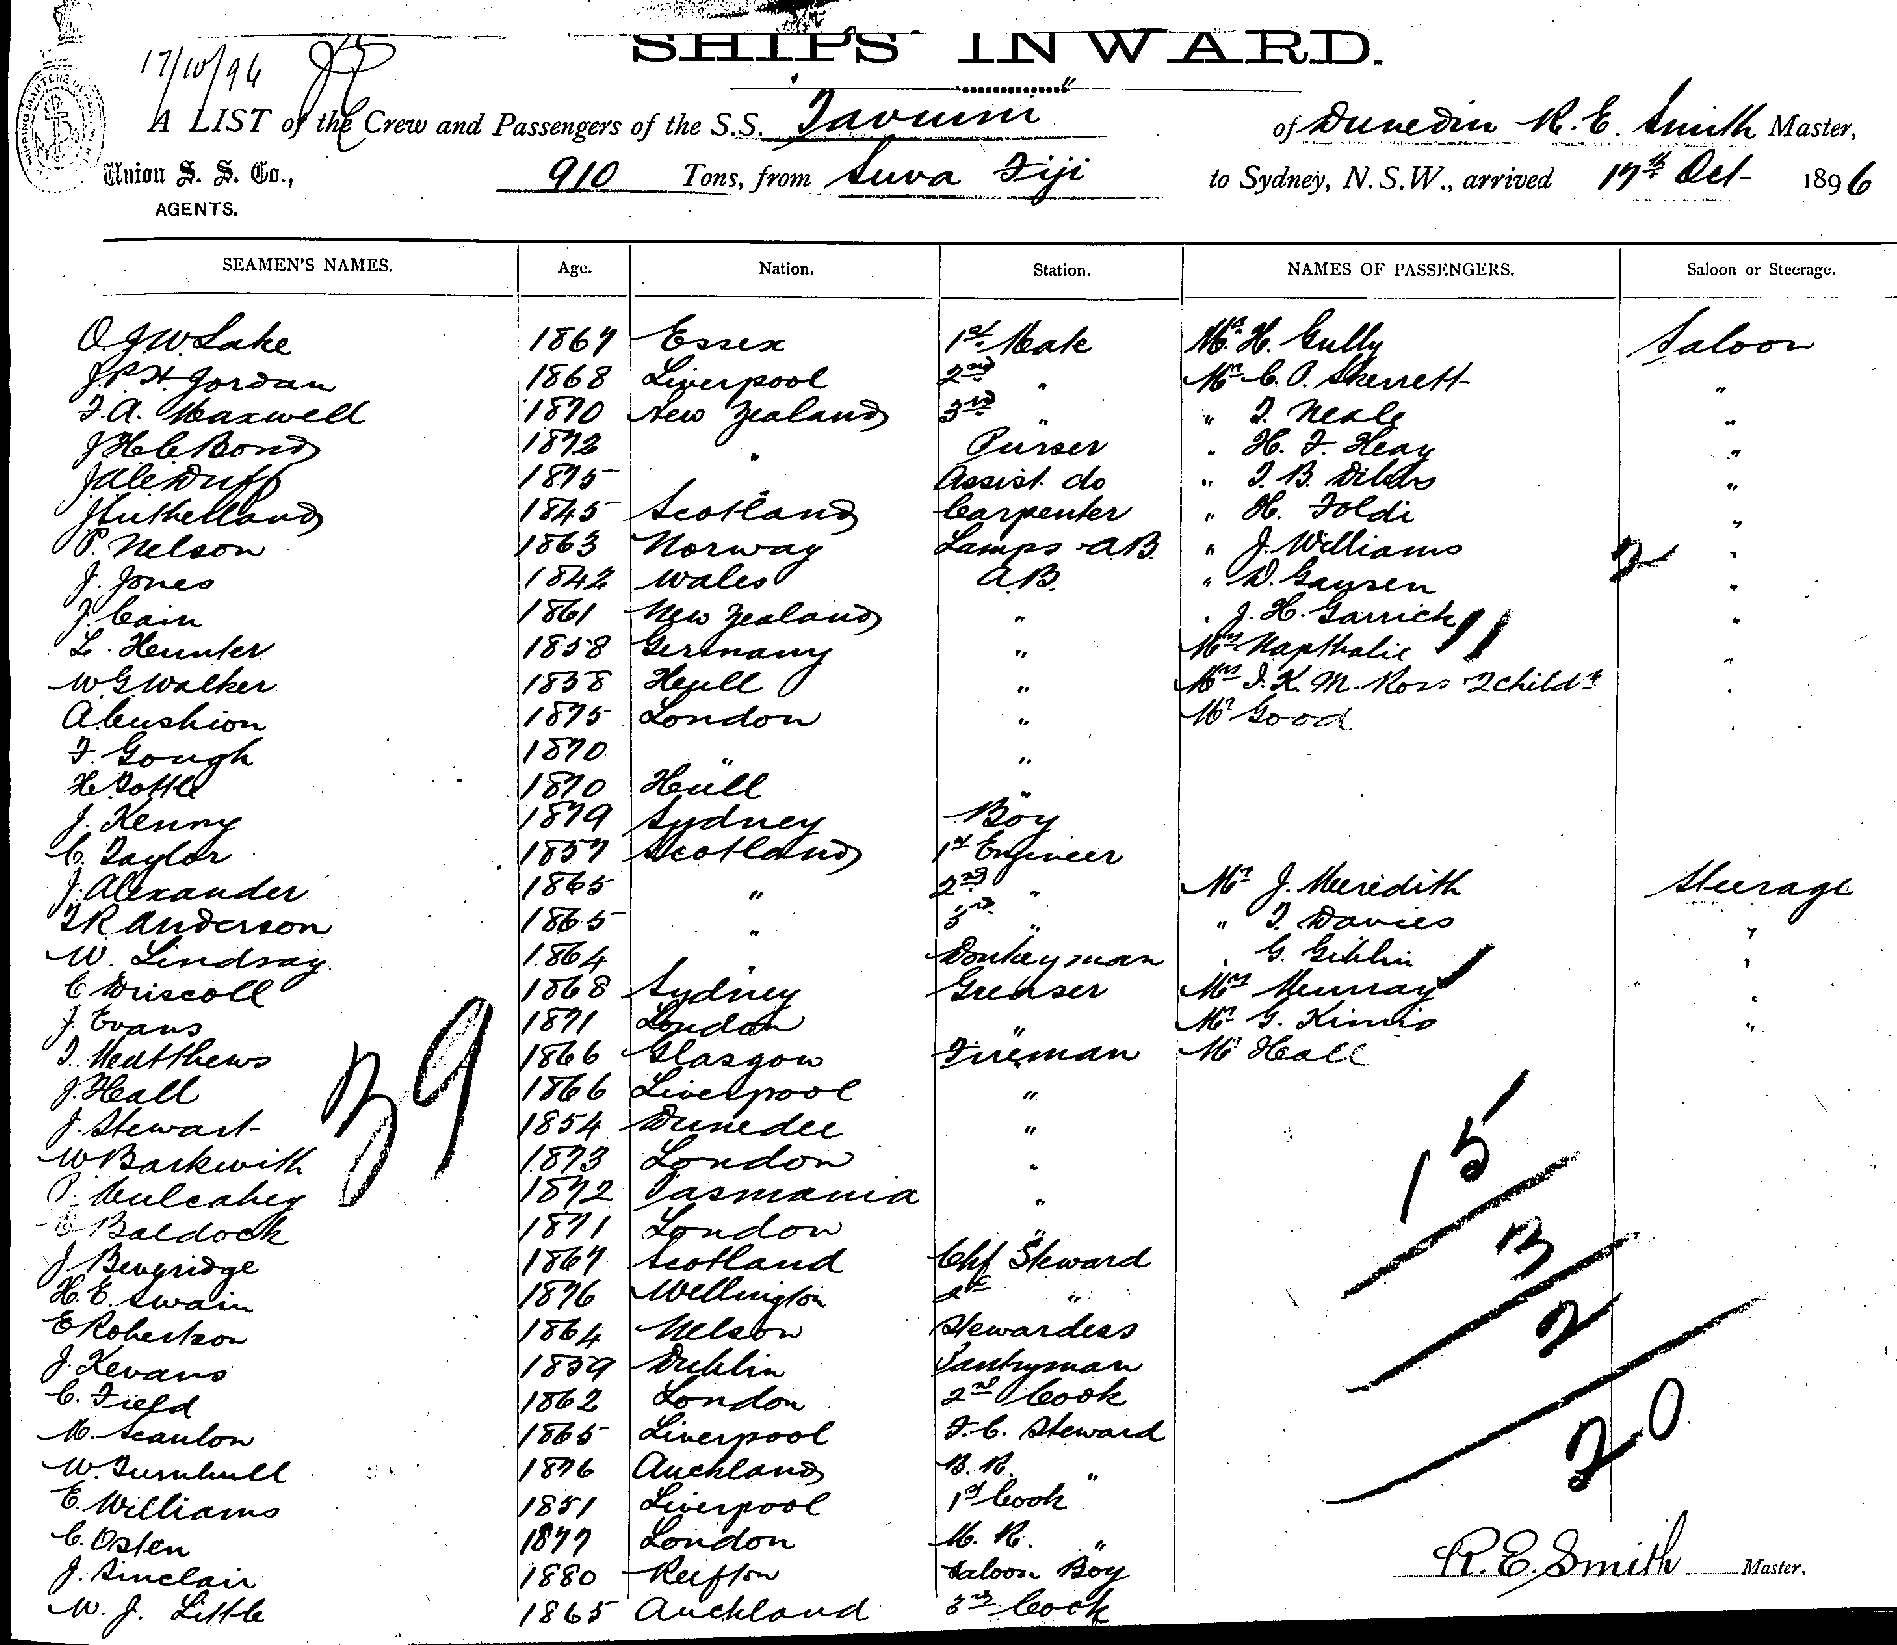 SHIPS INWARD.
17/10/96
A LIST of the Crew and Passengers of the S.S. "Taviuni" of Dunedin R. E. Smith Master,
Union S. S. Co., AGENTS. 910 Tons, from Suva Fiji to Sydney, N.S.W., arrived 17th Oct 1896
SEAMEN'S NAMES. Age. Nation. Station. NAMES OF PASSENGERS. Saloon or Steerage.
O J W Lake 1867 Essex 1st Mate H. Gully Saloon
J. P. H. Jordan 1868 Liverpool 2nd " Mr C. P. Skerrett "
F. A. Maxwell 1870 New Zealand 3rd " " T. Neale "
J H C Bond 1872 " Purser " H. F. Heay "
Duff 1875 " Assist do " T. B. "
J Sutherland 1845 Scotland Carpenter " H. Foldi "
P. Nelson 1863 Norway Lamps AB " J. Williams "
J. Jones 1842 Wales A.B. " D. Gaysen "
J. Cain 1861 New Zealand " " J. H. Garrick "
L. Hunter 1858 Germany " Mrs Napthalie "
W G Walker 1858 Hull " Mrs I. K. M. Ross 2 childn "
A Cushion 1875 London " Mr Good
F. Gough 1870 " "
H 1870 Hull "
J. Kenny 1879 Sydney Boy
C. Taylor 1857 Scotland 1st Engineer
J. Alexander 1865 " 2nd " Mr J. Meredith Steerage
T R Anderson 1865 " 3rd " " T. Davies "
W. Lindsay 1864 " Donkeyman " G. Giblin "
C Driscoll 1868 Sydney Greaser Mrs Murray "
J. Evans 1871 London " Mr G. "
T. Matthews 1866 Glasgow Fireman Mr Hall
J. Hall 1866 Liverpool "
J. Stewart 1854 Dundee "
W Barkwith 1873 London "
P. Mulcahey 1872 Tasmania "
C Baldock 1871 London "
J. Beveridge 1867 Scotland Chf Steward
H. E. Swain 1876 Wellington 2nd "
E Robertson 1864 Nelson Stewardess
J. Kevans 1859 Dublin Pantryman
C. Field 1862 London 2nd Cook
M. Scanlon 1865 Liverpool F. C. Steward
W. Turnbull 1876 Auckland B. R. "
E. Williams 1851 Liverpool 1st Cook
C. Osten 1877 London M. R. "
J. Sinclair 1880 Reefton Saloon Boy
W. J. Little 1865 Auckland 3rd Cook
39
2
15
3
2
20
R. E. Smith Master.